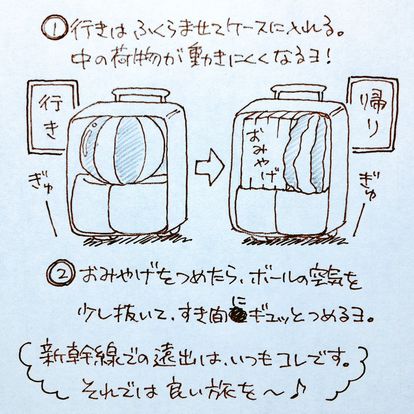 ①行きはふくらませてケースに入れる。
中の荷物が動きにくくなるヨ!
行き
帰り
おみやげ
ぎゅ
ぎゅ
②おみやげをつめたら、ボールの空気を
少し抜いて、すき間にギュッとつめるヨ。
新幹線での遠出は、いつもコレです。
それでは良い旅を〜♪